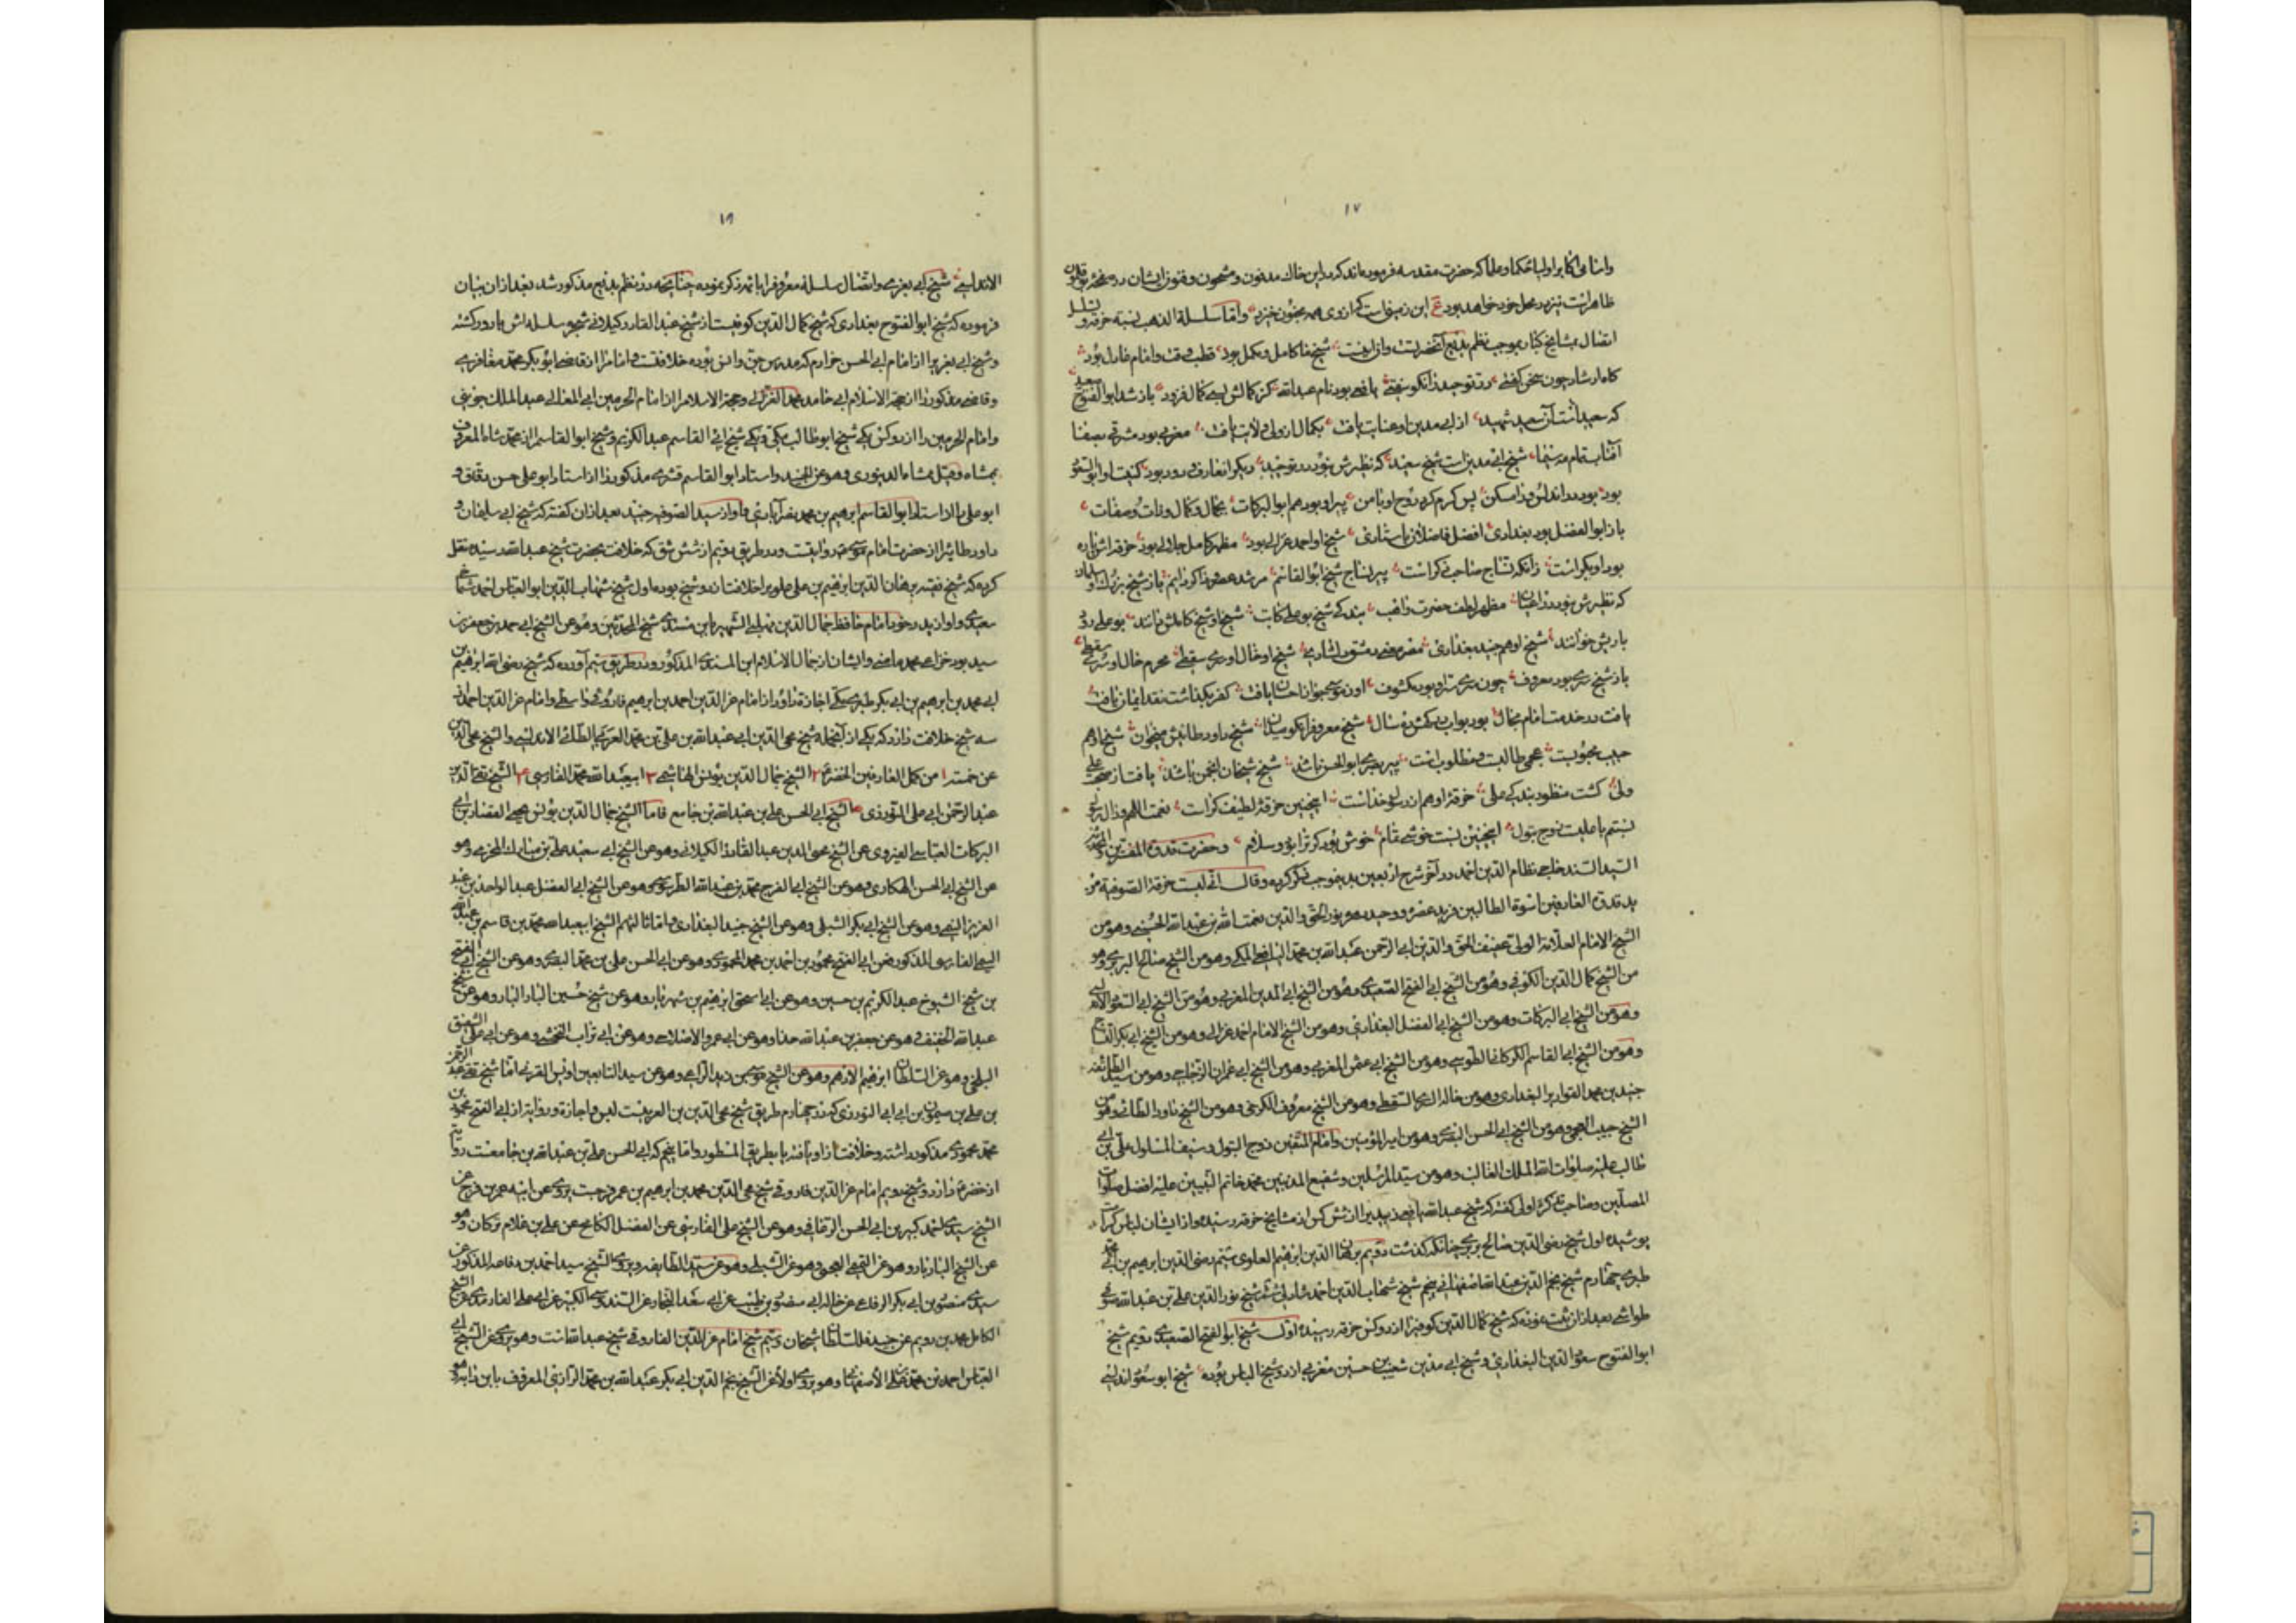 ١٧
واسامی اکابر اولیا و حکما و علما که حضرت مقدسه فرموده‌اند که در این خاک مدفون و مشحون و قبور ایشان در
ظاهر است نیز در محل خود خواهد بود ع این زمینی است کز وی همه مجنون خیزد و اما سلسلة الذهب نسبه خرقه و
اتصال بمشایخ کبار بموجب نظم بدیع آنحضرتست و آن اینست شیخ ما کامل و مکمل بود قطب وقت و امام عادل بود
گاه ارشاد چون سخن گفتی در توحید را نکو سفتی یافعی بود نام عبدالله کز کمالش کسی کمال فزود باز شد ابوالفتوح سعید
که سعیدانست آن سعید شهید از ابی مدین او عنایت یافت بکمال از ولی ولایت یافت مغربی بود مشرقی بصفا
آفتاب تمام مه سیما شیخ ابی مدین است شیخ سعید که نظیرش نبود در توحید دیگر العارف ودود بود کنیت او ابو السعود
بود بود در اندلس ورا مسکن پس کرم کرد روح او با من پیر او بود هم ابو البرکات بجمال و کمال و ذات و صفات
باز ابوالفضل بود بغدادی افضل فاضلان باستادی شیخ او احمد غزالی بود مظهر کامل جلالی بود خرقه اش پاره
بود او بکر است زانکه نساج صاحب ذکر است پیر نساج شیخ ابو القاسم مرشد عصر و ذاکر دایم باز شیخ بزرگ
که نظیرش نبود در اعیان مظهر لطف حضرت واهب بندگی شیخ بو علی کاتب شیخ او شیخ کاملش دانند بو علی رود
باریش خوانند شیخ او هم جنید بغدادی مصر معنی دمشق دلشادی شیخ او خال او سری سقطی محرم حال او سری سقطی
باز شیخ سری بود معروف چون سری سر او بود مکشوف او ز موسی جواز احسان یافت کفر بگذاشت نقد ایمان یافت
یافت در خدمت امام مجال بود بواب درگهش ده سال شیخ معروف را نکو میدان شیخ داود طائیش میخوان شیخ او هم
حبیب محبوبست عجمی طالب و مطلوب است پیر بصری ابو الحسن باشد شیخ شیخان انجمن باشد یافت از صحبت علی
ولی گشت منظور بندگی علی خرقه او هم از رسول خداست اینچنین خرقه لطیف کراست نعمت اللهم وز آل رسول
نسبتم با علیست زوج بتول اینچنین نسبت خوشی بتمام خوش بود گر ترا بود و سلام و حضرت قدوة المفسرین
السید السند خواجه نظام الدین احمد در آخر شرح اربعین بدینموجب ذکر کرده و قال انی لبست خرقة الصوفیه من
ید قدوة العارفین اسوة الطالبین فرید عصره و وحید دهره نور الحق والدین نعمت الله بن عبدالله الحسینی وهو من
الشیخ الامام العلامة الولی عفیف الحق والدین ابی الرحمن عبدالله بن محمد الیافعی المکی وهو من الشیخ صالح البربری وهو
من الشیخ کمال الدین الکوفی وهو من الشیخ ابی الفتح الصعیدی وهو من الشیخ ابی المدین المغربی وهو من الشیخ ابی السعود الاندلسی
وهو من الشیخ ابی البرکات وهو من الشیخ ابی الفضل البغدادی وهو من الشیخ الامام احمد غزالی وهو من الشیخ ابی بکر النساج
وهو من الشیخ ابی القاسم الکرکانی الطوسی وهو من الشیخ ابی عثمن المغربی وهو من الشیخ ابی عمران الزجاجی وهو من سید الطائفه
جنید بن محمد القواریر البغدادی وهو من خاله السری السقطی وهو من الشیخ معروف الکرخی وهو من الشیخ داود الطائی وهو من
الشیخ حبیب العجمی وهو من الشیخ ابی الحسن البصری وهو من امیرالمؤمنین وامام المتقین زوج البتول وسیف المسلول علی بن ابی
طالب علیه صلوات الله الملک الغالب وهو من سید المرسلین وشفیع المذنبین محمد خاتم النبیین علیه افضل صلوات
المصلین و صاحب تذکره اولی گفته که شیخ عبدالله یافعی را از شش کس از مشایخ خرقه رسیده و از ایشان لباس کرامت
پوشیده اول شیخ رضی الدین صالح بربری چنانکه گذشت دویم برهان الدین ابرهیم العلوی سیم رضی الدین ابرهیم بن محمد
طبری چهارم شیخ نجم الدین عبدالله اصفهانی پنجم شیخ شهاب الدین احمد شاذلی ششم شیخ نور الدین علی بن عبدالله صوفی
طواشی بعد از آن ثبت نموده که شیخ کمال الدین کوفی را از دو کس خرقه رسیده اول شیخ ابو الفتح الصعیدی دویم شیخ
ابو الفتوح سعود الدین البغدادی و شیخ ابی مدین شعیب بن حسین مغربی از دو شیخ الباس بوده شیخ ابو سعود اندلسی
١٨
الاندلسی شیخ ابی یعزی و اتصال سلسله معروف را باتمر ذکر نموده چنانچه در نظم بدیع مذکور شد بعد از آن بیان
فرموده که شیخ ابو الفتوح بغدادی که شیخ کمال الدین کوفیست از شیخ عبد القادر کیلانی شجره سلسله اش بارور گشته
و شیخ ابی یعزی را از امام ابی الحسن حرازم که مدرس حق و انس بوده خلافتست و امام را از قاضی ابو بکر محمد معافری
و قاضی مذکور را از حجة الاسلام ابی حامد محمد الغزالی و حجة الاسلام را از امام الحرمین ابی المعالی عبد الملک جوینی
و امام الحرمین را از دو کس یکی شیخ ابو طالب مکی و یکی شیخ ابی القاسم عبد الکریم و شیخ ابو القاسم از محمد شاه المعروف
بمشاد و قیل ممشاد الدینوری وهو عن الجنید و استاد ابو القاسم قشری مذکور را از استاد ابو علی حسن دقاق و
ابو علی را از استاد ابو القاسم ابرهیم بن محمد نصرآبادی و او از سید الصوفیه جنید بعد از آن گفته که شیخ ابی سلیمان
داود طائی را از حضرت امام موسی روایتست و در طریق دویم از شش شق که خلافت بحضرت شیخ عبدالله رسیده نقل
کرده که شیخ فقیه برهان الدین ابرهیم بن علی علوی را خلافت از دو شیخ بوده اول شیخ شهاب الدین ابو العباس احمد
سعیدی و او از پدر خود امام حافظ جمال الدین الشهیر بابن مسندی شیخ المحدثین وهو عن الشیخ ابی
سید بور خزاعی محمد ماضی و ایشان از جمال الاسلام ابن المسندی المذکور و در طریق سیم آورده که شیخ رضی الدین ابرهیم بن
ابی محمد بن ابرهیم بن ابی بکر طبری مکی اجازه دارد از امام عز الدین احمد بن ابرهیم فاروقی واسطی و امام عز الدین احمد از
سه شیخ خلافت دارد که یکی از آنجمله شیخ محی الدین ابی عبدالله بن علی بن محمد العربی الطائی الاندلسی والشیخ محی الدین
عن خمسة ١ من کمل العارفین الخضر ٢ الشیخ جمال الدین یونس الهاشمی ٣ ابی عبدالله محمد الفارسی ٤ الشیخ تقی الدین
عبد الرحمن ابی علی التوزری ٥ الشیخ ابی الحسن علی بن عبدالله بن جامع فاما الشیخ جمال الدین یونس یحیی القصار بن ابی
البرکات العباسی الفیروی عن الشیخ محی الدین عبد القادر الکیلانی وهو عن الشیخ ابی سعید علی بن مبارک المخزمی وهو
عن الشیخ ابی الحسن الهکاری وهو عن الشیخ ابی الفرج محمد بن عبدالله الطرسوسی وهو عن الشیخ ابی الفضل عبد الواحد بن عبد
العزیز التمیمی وهو عن الشیخ ابی بکر الشبلی وهو عن الشیخ جنید البغدادی و اما ثالثهم الشیخ ابی عبدالله محمد بن قاسم بن عبدالله
التمیمی الفارسی المذکور عن ابی الفتح محمود بن احمد بن محمد المحمودی وهو عن ابی الحسن علی بن محمد البصری وهو عن الشیخ ابی الفتح
بن شیخ الشیوخ عبد الکریم بن حسین وهو عن ابی اسحق ابرهیم بن شهریار وهو عن شیخ حسین البازیار وهو عن شیخ
عبدالله الخفیف وهو عن جعفر بن عبدالله حذا وهو عن ابی عمرو الاصطخری وهو عن ابی تراب النخشبی وهو عن ابی علی الشقیق
البلخی وهو عن السلطان ابرهیم الادهم وهو عن الشیخ موسی بن زید الراعی وهو عن سید التابعین اویس القرنی اما شیخ تقی عبد الرحمن
بن علی بن میمون بن ابی التوزری که در چهارم طریق شیخ محی الدین بن العربیست لبس و اجازه و روایة از ابی الفتح محمود بن
محمد محمودی مذکور داشته و خلافت از او یافته باطریق المسطور و اما پنجم که ابی الحسن علی بن عبدالله بن جامعست
از خضر دارد و شیخ دویم امام عز الدین فاروقی شیخ محی الدین محمد بن ابرهیم بن عمر فرجست یروی عن ابیه عمر بن فرج عن
الشیخ سیدی احمد کبیر بن ابی الحسن الرفاعی وهو عن الشیخ علی الفارسی عن الفضل الکامخ عن علی بن غلام ترکان وهو
عن الشیخ البازیار وهو عن العجمی وهو عن الشبلی وهو عن سید الطایفه ویروی الشیخ سید احمد بن رفاعه المذکور عن
سیدی منصور بن ابی بکر الرفاعی عن خاله ابی منصور بن طیب عن ابی سعد النجار عن السندوسی الکبیر عن ابی علی الفارمدی عن الشیخ
الکامل محمد بن رویم عن جنید سلطان شیخان سیم شیخ امام عز الدین الفاروقی شیخ عبدالله است وهو یروی عن الشیخ ابی
العباس احمد بن محمد الاصفهانی وهو یروی اولا عن الشیخ نجم الدین ابی بکر عبدالله بن محمد الرازی المعروف بابن دایه وهو